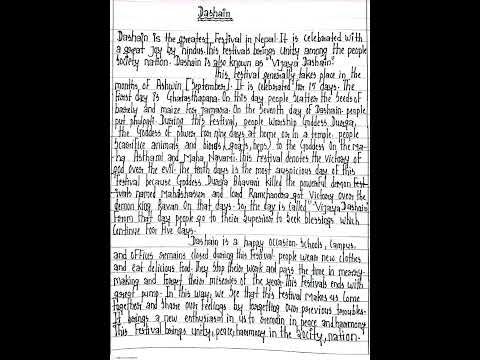 Dashain
Dashain is the greatest festival in Nepal. It is celebrated with
a great joy by hindus. this festivals brings unity among the people
society nation. Dashain is also known as "Vijaya Dashain"
this festival generally takes place in the
months of Ashwin [September]. It is celebrated for 15 days. The
first day is Ghatasthapana. On this day people scatter the seeds of
barely and maize for Jamara. On the seventh day of Dashain. people
put phulpati. During this festival, people worship Goddess Durga,
the Goddess of power for nine days at home or in a temple. people
scacrifice animals and birds [goats, hens] to the Goddess On the Ma-
ha Asthami and Maha Navami. This festival denotes the victory of
god over the evil. the tenth days is the most auspicious day of this
festival because Goddess Durga Bhavani killed the powerful demon
named Mahishasur and lord Ramchandra got victory over the
demon king Ravan On that days. So, the day is called "Vijaya Dashain
From that day people go to their superior to seek blessings which
continue for five days.
Dashain is a happy occasion. schools, Campus
and offices remains closed during this festival. people wear new clothes
and eat delicious food. They stop their work and pass the time in merry-
making and forget their miseries of the year. this festivals ends with
great pump. In this way, we see that this festival makes us come
together and share our feelings by forgetting our previous troubles.
It brings a new enthusiasm in us to in peace and harmony.
This festival brings unity, peace, harmony in the society, nation.